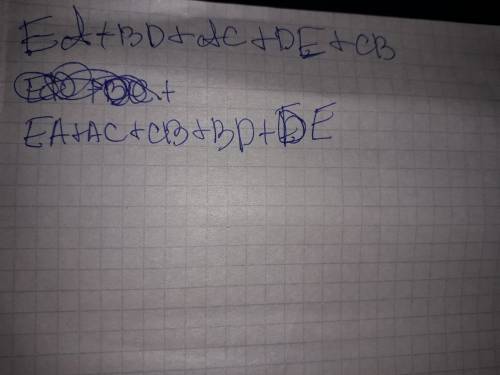 EA+BD+AC+DE+CB
EA+AC+CB+BD+DE